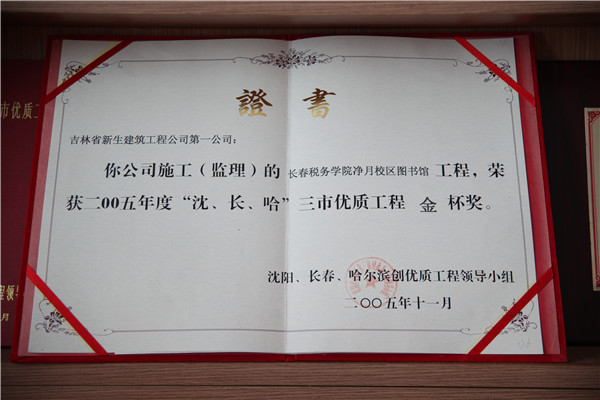 證書
吉林省新生建筑工程公司第一公司：
你公司施工（监理）的 长春税务学院净月校区图书馆 工程，荣
获二00五年度“沈、长、哈”三市优质工程 金 杯奖。
沈阳、长春、哈尔滨创优质工程领导小组
二〇〇五年十一月
市优质工
程领导
月